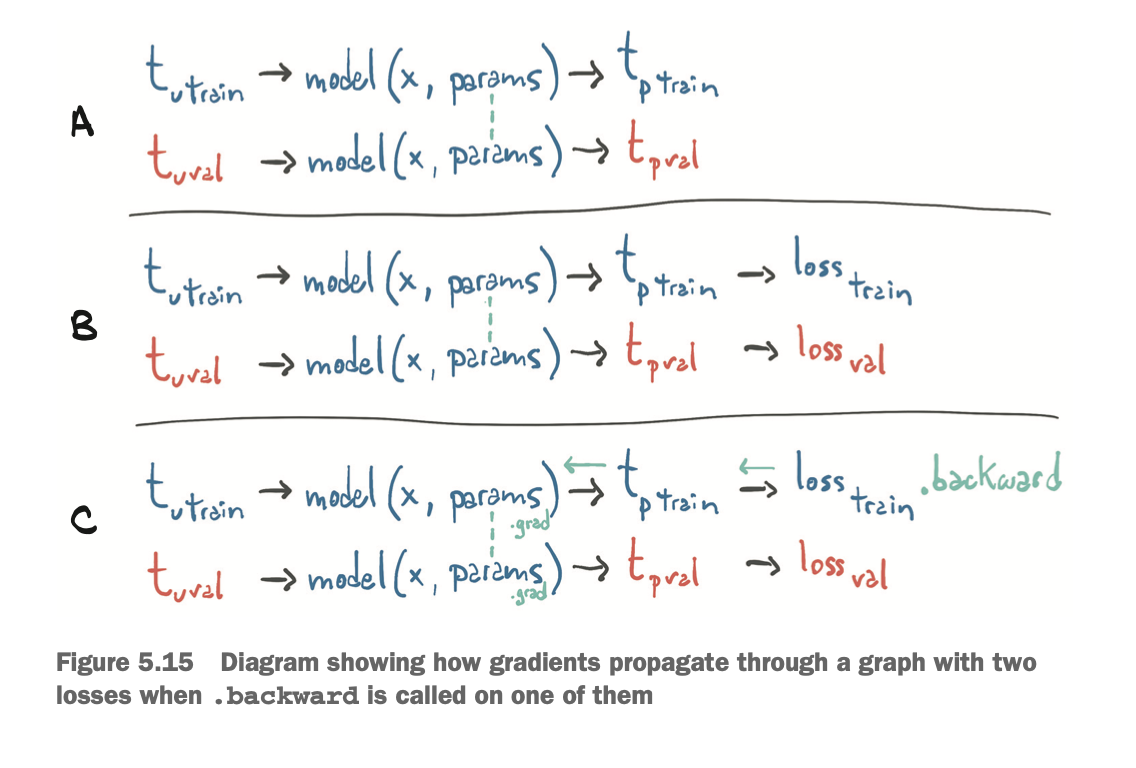 t_u train → model (x, params) → t_p train
A
t_u val → model (x, params) → t_p val
t_u train → model (x, params) → t_p train → loss train
B
t_u val → model (x, params) → t_p val → loss val
t_u train → model (x, params) → t_p train → loss train .backward
.grad
C
t_u val → model (x, params) → t_p val → loss val
.grad
Figure 5.15 Diagram showing how gradients propagate through a graph with two
losses when .backward is called on one of them